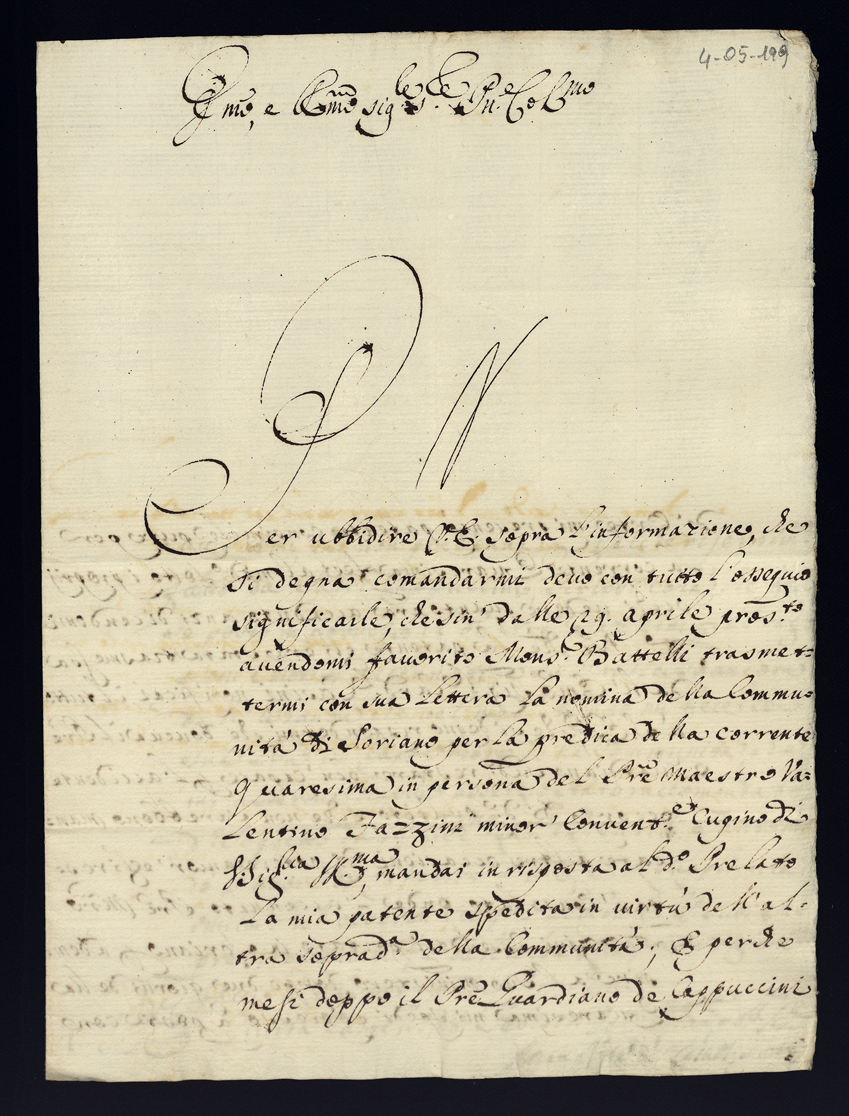 4-05-199
Ill.mo, e R.mo Sig.re S.re P.rone Col.mo
Per ubbidire V.E. sopra l'informazione, che
si degna comandarmi devo con tutto l'ossequio
significarle, che sin' dalle 29. aprile pross.to
avendomi favorito Mons.r Battelli trasmet=
termi con sua lettera la nomina della Commu=
nità di Soriano per la predica della corrente
Quaresima in persona del Pre Maestro Va=
lentino Fazzini minor' Convent.e Cugino di
mandai in risposta al d.o Prelato
la mia patente spedita in virtù dell'al=
tra soprad.a della Communità; E perche
mesi doppo il Pre Guardiano de Cappuccini